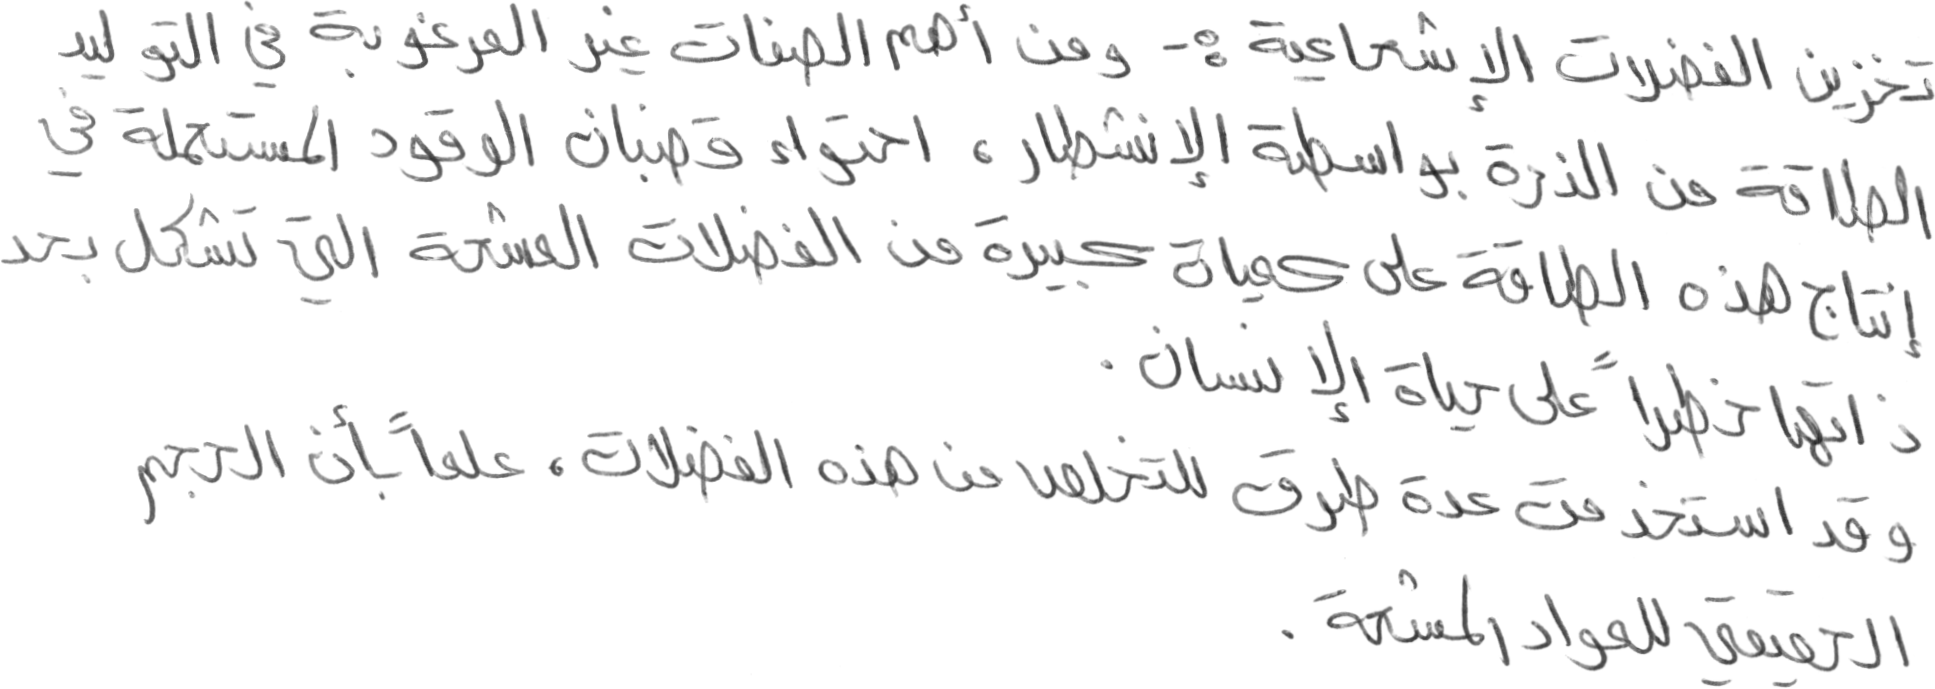 تخزين الفضلات الإشعاعية :- ومن أهم الصفات غير المرغوبة في التوليد
الطلاقة من الذرة بواسطة الإنشطار، احتواء قضبان الوقود المستعملة في
إنتاج هذه الطاقة على كميات كبيرة من الفضلات المشعة التي تشكل بحد
ذاتها خطراً على حياة الإنسان .
وقد استخدمت عدة طرق للتخلص من هذه الفضلات، علماً بأن الحجم
الحقيقي للمواد المشعة .